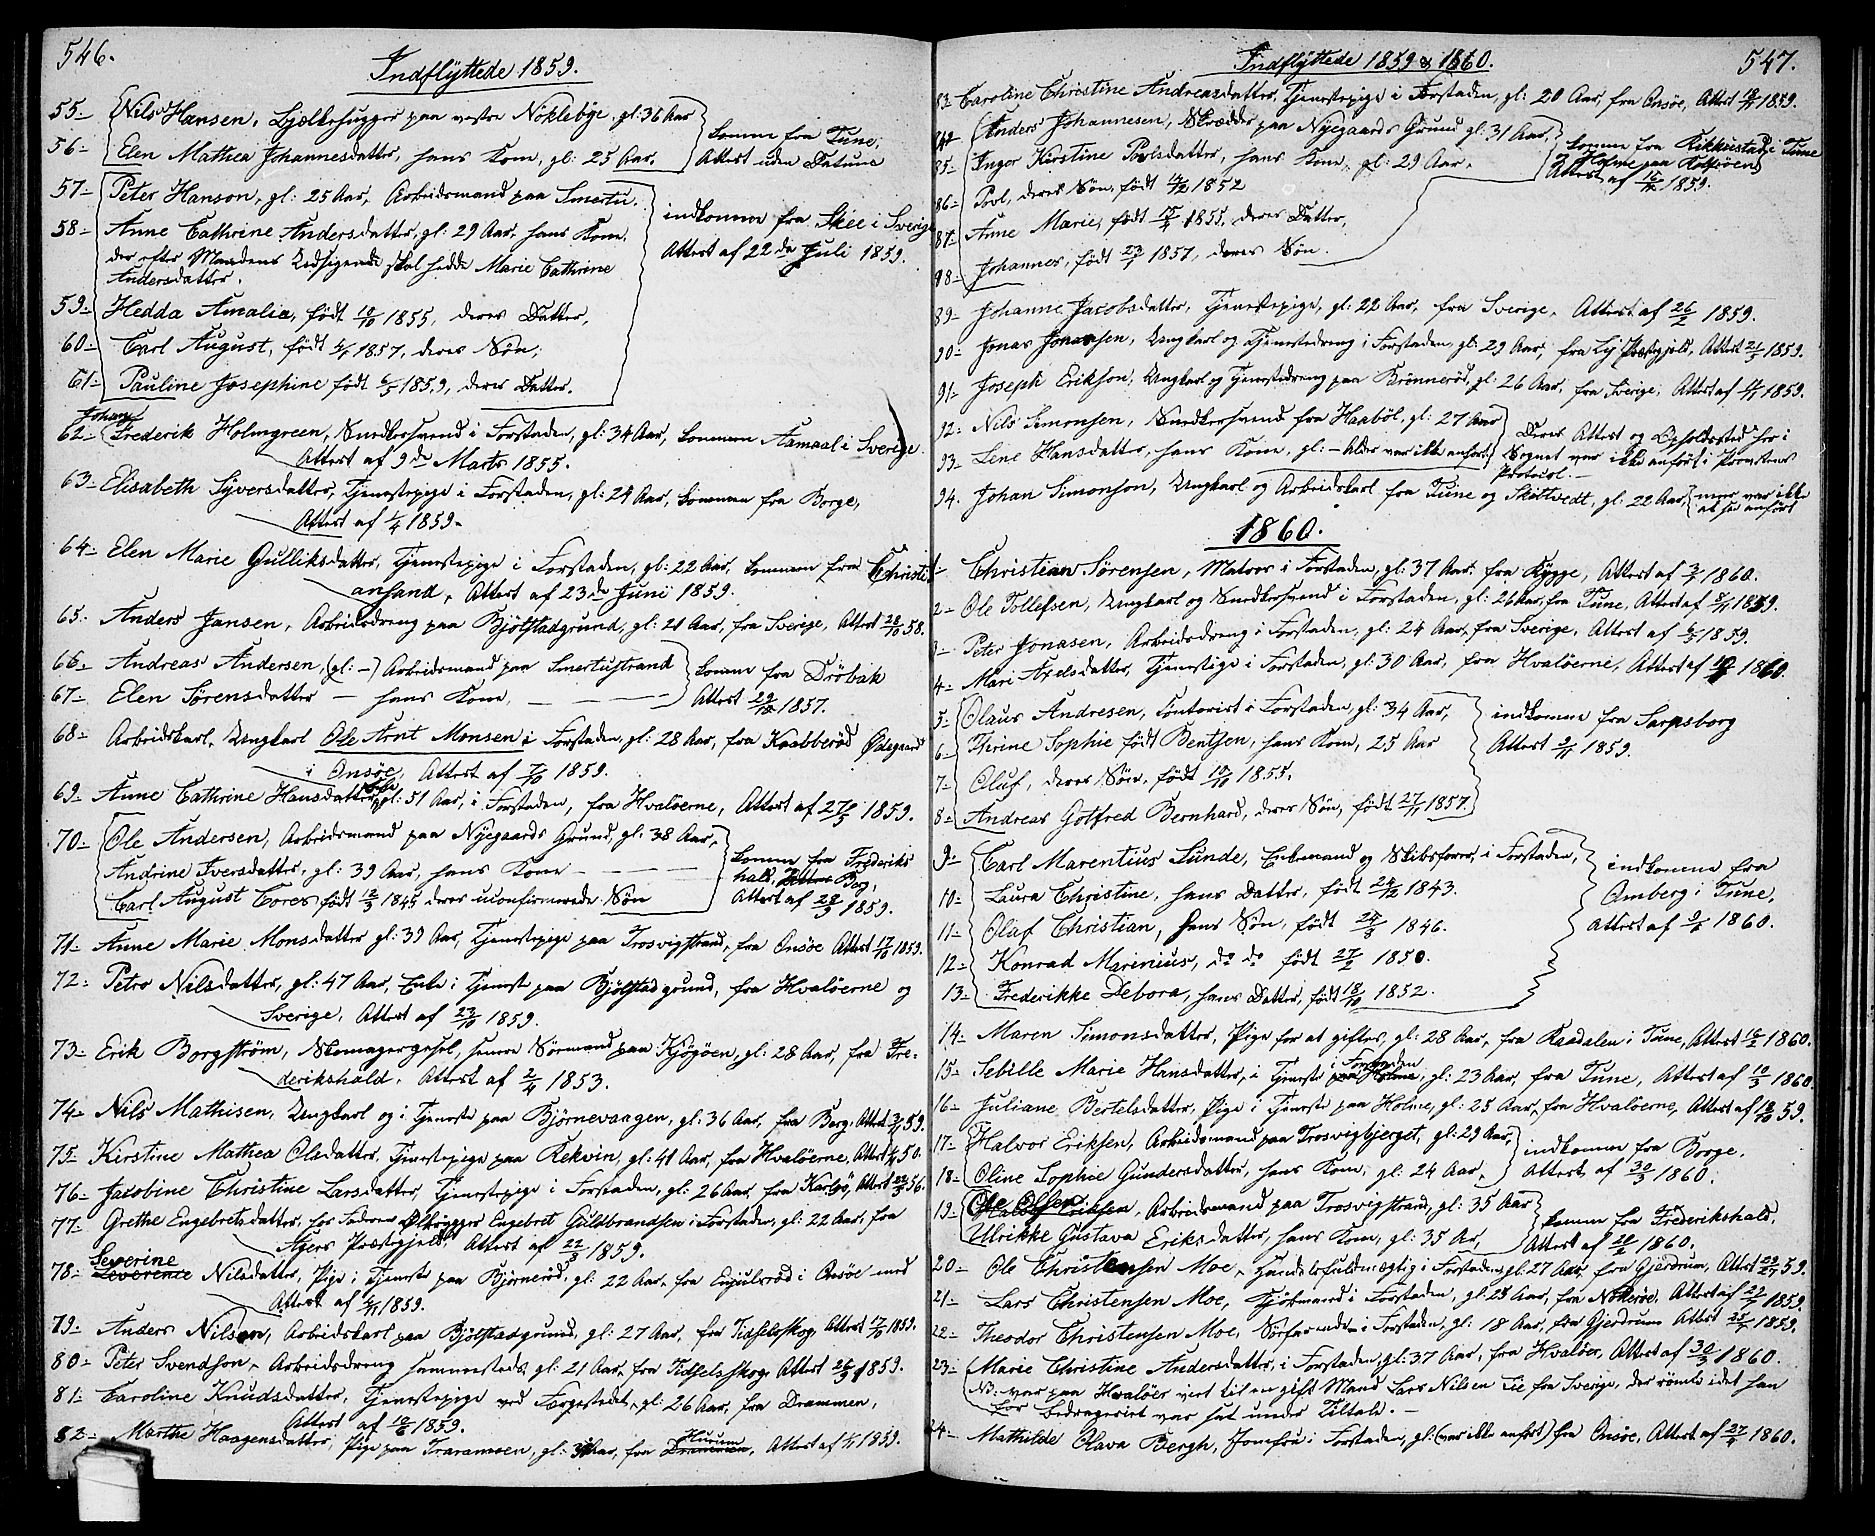 546.
Indflyttede 1859.
55- Nils Hansen, Bjælkehugger paa vestre Nöklebye, gl: 36 Aar
56- Elen Mathea Johannesdatter, hans Kone, gl: 25 Aar,
komne fra Tune,
Attest uden Datum
57- Peter Hanson, gl: 25 Aar, Arbeidsmand paa Smertu.
58- Anne Cathrine Andersdatter, gl: 29 Aar, hans Kone,
der efter Mandens Udsigende skal hedde Marie Cathrine
Andersdatter.
indkomne fra Skee i Sverige
Attest af 22de Juli 1859.
59- Hedda Amalia, född 10/10 1855, deres Datter,
60- Carl August, födt 1857, deres Søn;
61- Pauline Josephine födt 6/5 1859, deres Datter.
Johan
62- Frederik Holmgreen, Snedkersvend i Forstaden, gl: 34 Aar, kommen Aamaal i Sverige
Attest af 9de Marts 1855.
63- Elisabeth Syversdatter, Tjenestepige i Forstaden, gl: 24 Aar, kommen fra Borge,
Attest af 1/4 1859-
64- Elen Marie Gulliksdatter, Tjenestepige i Forstaden, gl: 22 Aar, kommen fra Christi-
ansand, Attest af 23de Juni 1859.
65. Anders Jansen, Arbeidsdreng paa Bjölstadgrund, gl: 21 Aar, fra Sverige, Attest 28/10 58.
66- Andreas Andersen, (gl: -) Arbeidsmand paa Smertustrand
67- Elen Sørensdatter - hans Kone,
komne fra Dröbak
Attest 29/10 1857.
68- Arbeidskarl, Ungkarl Ole Arnt Monsen i Forstaden, gl: 28 Aar, fra Knabberöd Ødegaard
i Onsöe, Attest af 7/10 1859.
69- Anne Cathrine Hansdatter, gl: 51 Aar, i Forstaden, fra Hvalöerne, Attest af 27/5 1859.
70- Ole Andersen, Arbeidsmand paa Nyegaards Grund, gl: 38 Aar,
Andrine Iversdatter, gl: 39 Aar, hans Kone
Carl August Cores födt 12/3 1845 deres uconfirmerede Søn
komne fra Frederiks
hald, Berg,
Attest af 28/9 1859.
71- Anne Marie Monsdatter gl: 39 Aar, Tjenestepige paa Trosvigstrand, fra Onsöe Attest 17/10 1859.
72- Petro Nilsdatter, gl: 47 Aar, Enke i Tjeneste paa Bjölstadgrund, fra Hvalöerne og
Sverige, Attest af 23/10 1859.
73- Erik Borgström, Skomagergesel, senere Sömand paa Kjögöen, gl: 28 Aar, fra Fre-
derikshald, Attest af 2/4 1853.
74- Nils Mathisen, Ungkarl og i Tjeneste paa Björnevaagen, gl: 36 Aar, fra Berg, Attest 59.
75- Kirstine Mathea Olsdatter, Tjenestepige paa Rekvin, gl: 41 Aar, fra Hvalöerne, Attest 50.
76- Jacobine Christine Larsdatter, Tjenestepige i Forstaden, gl: 26 Aar, fra Karlsö, Attest 56.
77- Grethe Engebretsdatter, hos Faderen Ølbrygger Engebret Guldbrandsen i Forstaden, gl: 22 Aar, fra
Agers Præstegjeld, Attest af 22/9 1859.
Severine
78- Nilsdatter, Pige i Tjeneste paa Björneröd, gl: 22 Aar, fra Engulsröd i Onsöe med
Attest af 1859.
79- Anders Nilson, Arbeidskarl paa Bjölstadgrund, gl: 27 Aar, fra Tidselsskog, Attest 17/10 1859.
80- Peter Svendson, Arbeidsdreng sammesteds, gl: 21 Aar, fra Tidselsskog, Attest 1859.
81- Caroline Knudsdatter, Tjenestepige ved Færgestedet, gl: 26 Aar, fra Drammen,
Attest af 10/6 1859.
82- Marthe Haagensdatter, Pige paa Traraneen, gl: Aar, fra Hurum, Attest af 1859.
Indflyttede 1859 & 1860.
547.
83 Caroline Christine Andreasdatter, Tjenestepige i Forstaden, gl: 20 Aar, fra Onsöe, Attest 1859.
84 Anders Johannesen, Skrædder paa Nyegaards Grund gl: 31 Aar,
85- Inger Kirstine Povlsdatter, hans Kone, gl: 29 Aar,
86- Povl, deres Søn, födt 1852
87- Anne Marie, födt 1855, deres Datter,
88- Johannes, födt 23/1 1857, deres Søn.
komne fra Rikkestad i Tune
Holme paa Kraagöen
Attest af 1859.
89- Johanne Jacobsdatter, Tjenestepige, gl: 22 Aar, fra Sverige, Attest af 26/2 1859.
90- Jonas Jonassen, Ungkarl og Tjenestedreng i Forstaden, gl: 29 Aar, fra Ly Præstegjeld, Attest 21/5 1859.
91- Joseph Erikson, Ungkarl og Tjenestedreng paa Brönneröd, gl: 26 Aar, fra Sverige, Attest af 1859.
92- Nils Simonsen, Snedkersvend fra Haaböl, gl: 27 Aar
93- Lene Hansdatter, hans Kone, gl: - Alder var ikke anfört
Deres Attest og Opholdssted her i
Sognet var ikke anfört i Provstens
Protocol.
94. Johan Simonson, Ungkarl og Arbeidskarl fra Tune og Skiltvedt, gl: 22 Aar, mere var ikke
at see anfört
1860.
Christian Sørensen, Matros i Forstaden, gl: 37 Aar, fra Rygge, Attest af 3/1 1860.
2- Ole Tollefsen, Ungkarl og Snedkersvend i Forstaden, gl: 26 Aar, fra Tune, Attest af 1859.
3- Peter Jonasen, Arbeidsdreng i Forstaden, gl: 24 Aar, fra Sverige, Attest af 1859.
4- Mari Axelsdatter, Tjenestige i Forstaden, gl: 30 Aar, fra Hvalöerne, Attest af 1860.
5- Olaus Andresen, Contorist i Forstaden, gl: 34 Aar,
6- Thrine Sophie född Bentsen, hans Kone, 25 Aar
7- Oluf, deres Søn, födt 10/10 1855.
8- Andreas Gotfred Bernhard, deres Søn, födt 27/11 1857.
indkomne fra Sarpsborg
Attest 1859.
9- Carl Marentius Lunde, Enkemand og Skibsförer, i Forstaden,
10- Laura Christine, hans Datter, födt 1843.
11- Olaf Christian, hans Søn, födt 24/8 1846.
12- Konrad Marinius, do do födt 27/2 1850.
13- Frederikke Debora, hans Datter, födt 18/10 1852.
indkomne fra
Omberg i Tune,
Attest af 1860.
14- Maren Simonsdatter, Pige for at giftes, gl: 28 Aar, fra Raadalen i Tune, Attest 16/2 1860.
15- Sebille Marie Hansdatter, i Tjeneste i Forstaden, gl: 23 Aar, fra Tune, Attest af 10/3 1860
16- Juliane Bertelsdatter, Pige i Tjeneste paa Holme, gl: 25 Aar, fra Hvalöerne, Attest af 59.
17- Halvor Eriksen, Arbeidsmand paa Trosvigbjerget, gl: 29 Aar,
18- Oline Sophie Gundersdatter, hans Kone, gl: 24 Aar,
indkomne fra Borge,
Attest af 30/3 1860.
19- Ole Olsen, Arbeidsmand paa Trosvigstrand, gl: 35 Aar
Ulrikke Gustava Eriksdatter, hans Kone, gl: 35 Aar,
komne fra Frederikshald,
Attest af 1860.
20- Ole Christensen Moe, Handelsfuldmægtig i Forstaden, gl: 27 Aar, fra Gjerdrum, Attest 59.
21- Lars Christensen Moe, Kjöbmand i Forstaden, gl: 25 Aar, fra , Attest af 1859.
22- Theodor Christensen Moe, Söfarende i Forstaden, gl: 18 Aar, fra Gjerdrum Attest 1859.
23- Marie Christine Andersdatter, i Forstaden, gl: 37 Aar, fra Hvalöer, Attest af 30/3 1860.
NB. var paa Hvalöer viet til en gift Mand Lars Nilsen Lie fra Sverige, der römte idet han
for Bedrageriet var sat under Tiltale. -
24- Mathilde Olava Bergh, Jomfru i Forstaden, gl: (var ikke anfört) fra Onsöe, Attest af 27/4 1860.